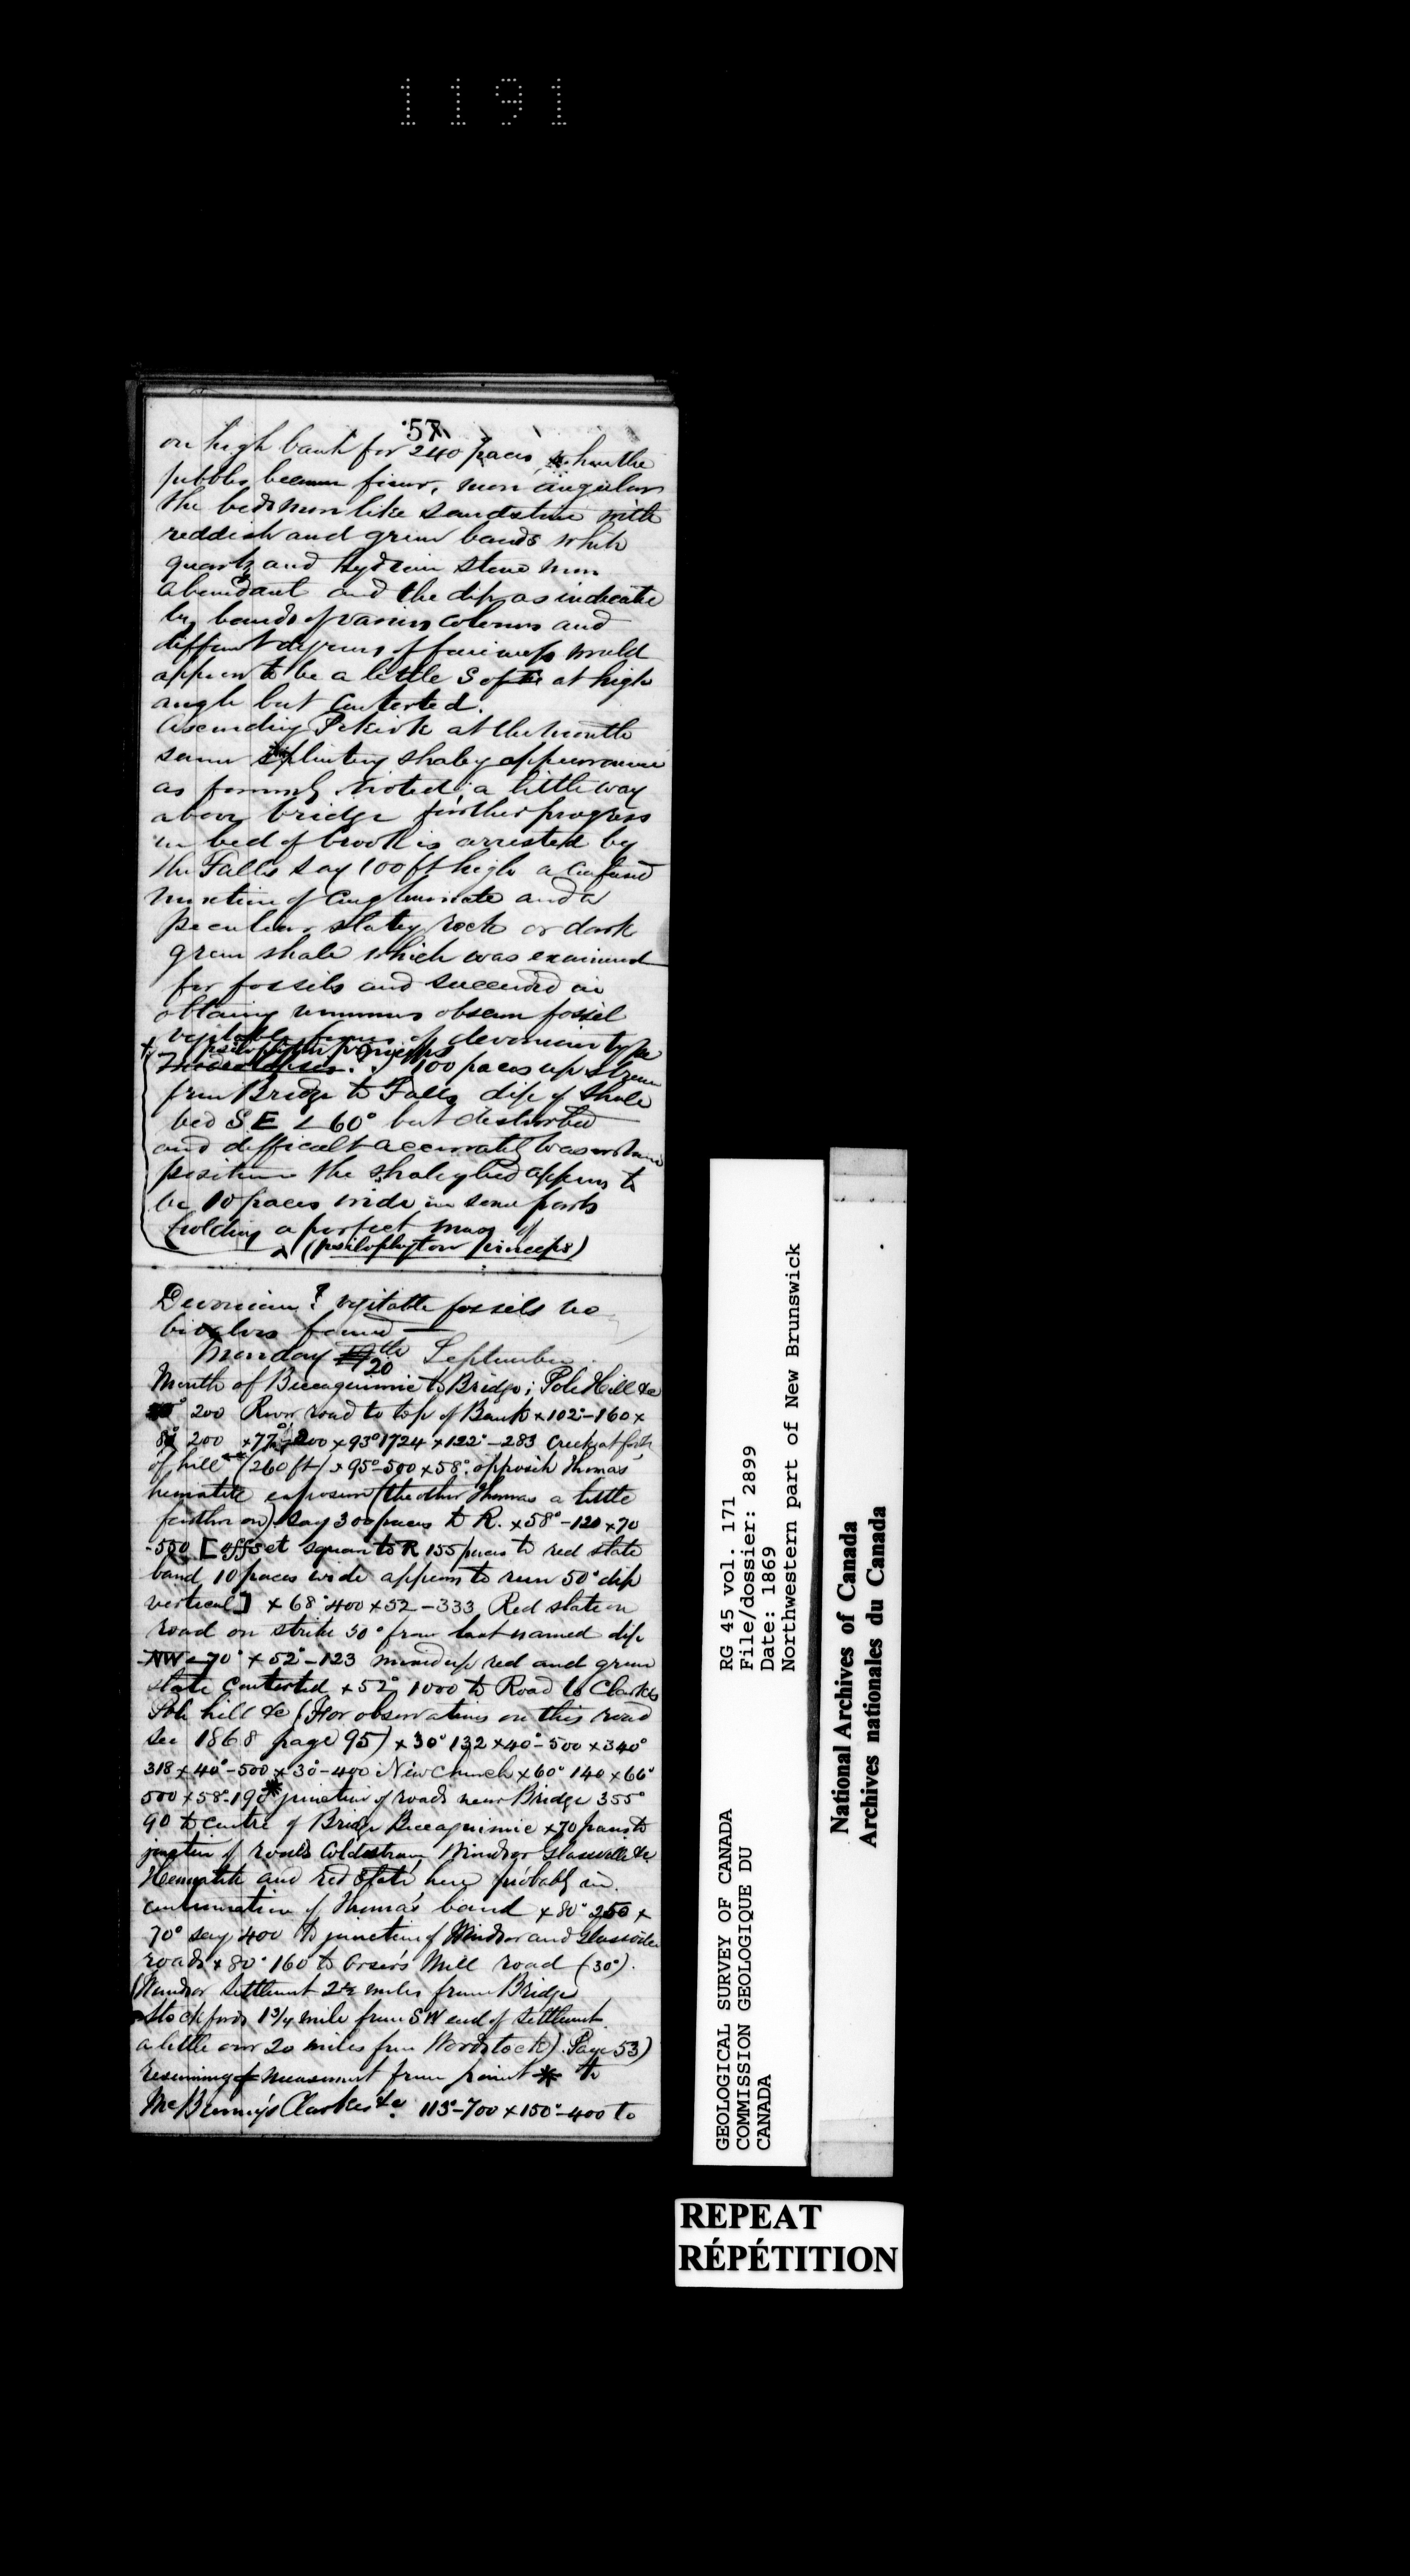 1191
57
on high bank for 240 paces, when the
pebbles become finer, more angular
the beds more like sandstone with
reddish and green bands white
quartz and Lydian stone more
abundant and the dip as indicated
by bands of various colours and
different degrees of fineness would
appear to be a little S of E at high
angle but contorted.
Ascending Pokiok at the mouth
same splintery shaley appearance
as formerly noted, a little way
above bridge further progress
in bed of brook is arrested by
the Falls say 100 ft high a confused
mixture of conglomerate and a
peculiar slatey rock or dark
green shale which was examined
for fossils and succeeded in
obtaining numerous obscure fossil
vegetable forms of devonian type
psilophyton princeps
100 paces up stream
from Bridge to Falls dip of Shale
bed S E < 60° but disturbed
and difficult accurately
position the shaley bed appears to
be 10 paces wide in some parts
holding a perfect mass of
(psilophyton princeps)
Devonian? vegitable fossils no
bivalves found —
Monday 20th September
Mouth of Beccaguimic to Bridge; Pole Hill &c
200 River road to top of Bank x 102°-160 x
200 x 77° 200 x 93° 1724 x 122°-283 Creek at foot
of hill (260 ft) x 95°-500 x 58° opposite Thomas'
hematite exposure (the other Thomas a little
further on) say 300 paces to R. x 58°-120 x 70
-550 [offset square to R 155 paces to red slate
band 10 paces wide appears to run 50° dip
vertical] x 68° 400 x 52-333 Red slate on
road on strike 50° from last named dip
NW < 70° x 52°-123 mixed up red and green
slate contorted x 52° 1000 to Road to Clarkes
Pole hill &c (For observations on this road
see 1868 page 95) x 30° 132 x 40°-500 x 340°
318 x 40°-500 x 30-400 New Church x 60° 140 x 66°
500 x 58°-190 * junction of roads near Bridge 355°
90 to centre of Bridge Beccaguimic x 70 paces to
junction of roads Coldstream Windsor Glassville &c
Hematite and red slate here probably in
continuation of Thomas' band x 80° 250 x
70° say 400 to junction of Windsor and Glassville
roads x 80° 160 to Orser's Mill road (30°).
(Windsor Settlement 2½ miles from Bridge
Stockfords 1¾ mile from SW end of settlement
a little over 20 miles from Woodstock). Page 53)
resuming measurement from point * to
McBurney's Clarkes &c. 113°-700 x 150°-400 to
GEOLOGICAL SURVEY OF CANADA
COMMISSION GEOLOGIQUE DU
CANADA
RG 45 vol. 171
File/dossier: 2899
Date: 1869
Northwestern part of New Brunswick
National Archives of Canada
Archives nationales du Canada
REPEAT
RÉPÉTITION